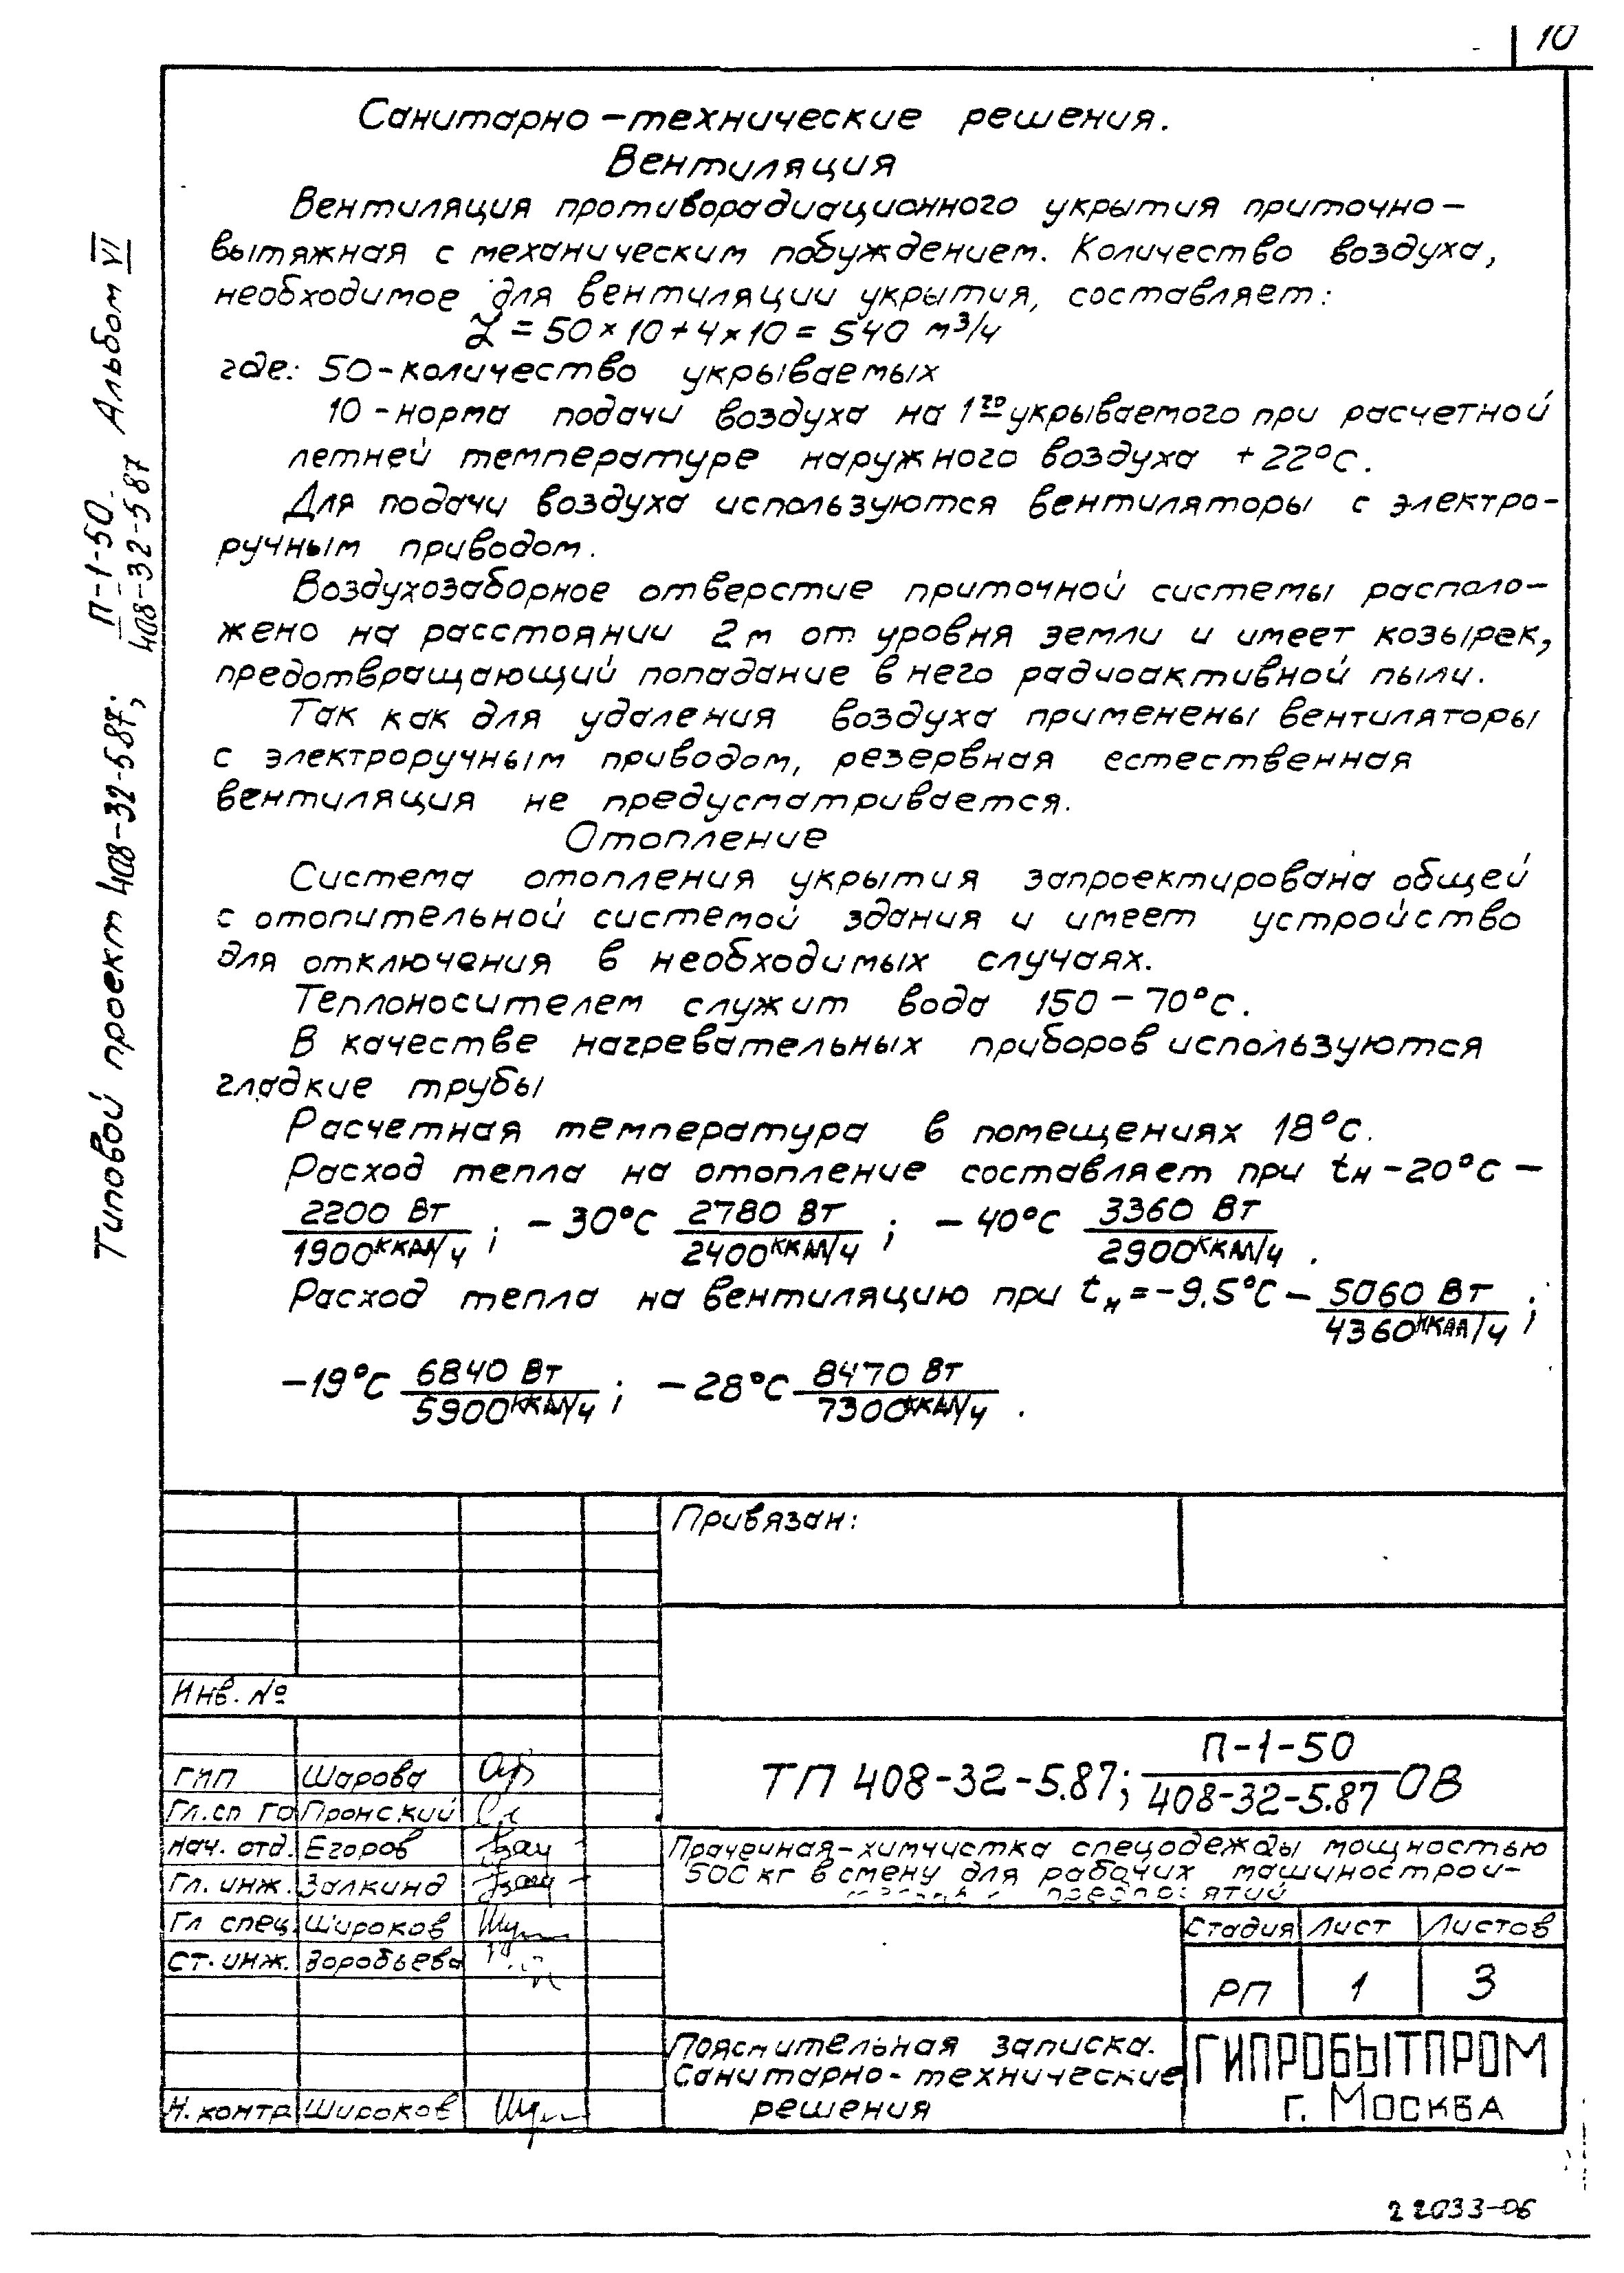 10
Санитарно-технические решения.
Вентиляция
Вентиляция противорадиационного укрытия приточно-
вытяжная с механическим побуждением. Количество воздуха,
необходимое для вентиляции укрытия, составляет:
L = 50 × 10 + 4 × 10 = 540 м³/ч
где: 50 - количество укрываемых
10 - норма подачи воздуха на 1го укрываемого при расчетной
летней температуре наружного воздуха +22°С.
Для подачи воздуха используются вентиляторы с электро-
ручным приводом.
Воздухозаборное отверстие приточной системы располо-
жено на расстоянии 2м от уровня земли и имеет козырек,
предотвращающий попадание в него радиоактивной пыли.
Так как для удаления воздуха применены вентиляторы
с электроручным приводом, резервная естественная
вентиляция не предусматривается.
Отопление
Система отопления укрытия запроектирована общей
с отопительной системой здания и имеет устройство
для отключения в необходимых случаях.
Теплоносителем служит вода 150 - 70°С.
В качестве нагревательных приборов используются
гладкие трубы
Расчетная температура в помещениях 18°С.
Расход тепла на отопление составляет при tн -20°С -
2200 Вт / 1900 ккал/ч ; -30°С 2780 Вт / 2400 ккал/ч ; -40°С 3360 Вт / 2900 ккал/ч .
Расход тепла на вентиляцию при tн = -9.5°С - 5060 Вт / 4360 ккал/ч ;
-19°С 6840 Вт / 5900 ккал/ч ; -28°С 8470 Вт / 7300 ккал/ч .
Типовой проект 408-32-5.87; П-1-50 / 408-32-5.87 Альбом VI
Привязан:
Инв. №
ГИП Шарова
Гл.сп ГО Пронский
Нач. отд. Егоров
Гл. инж. Залкинд
Гл спец. Широков
Ст. инж. Воробьева
Н. контр Широков
ТП 408-32-5.87; П-1-50 / 408-32-5.87 ОВ
Прачечная-химчистка спецодежды мощностью
500 кг в смену для рабочих машинострои-
предприятий
Стадия Лист Листов
РП 1 3
Пояснительная записка.
Санитарно-технические
решения
ГИПРОБЫТПРОМ
г. Москва
22033-06